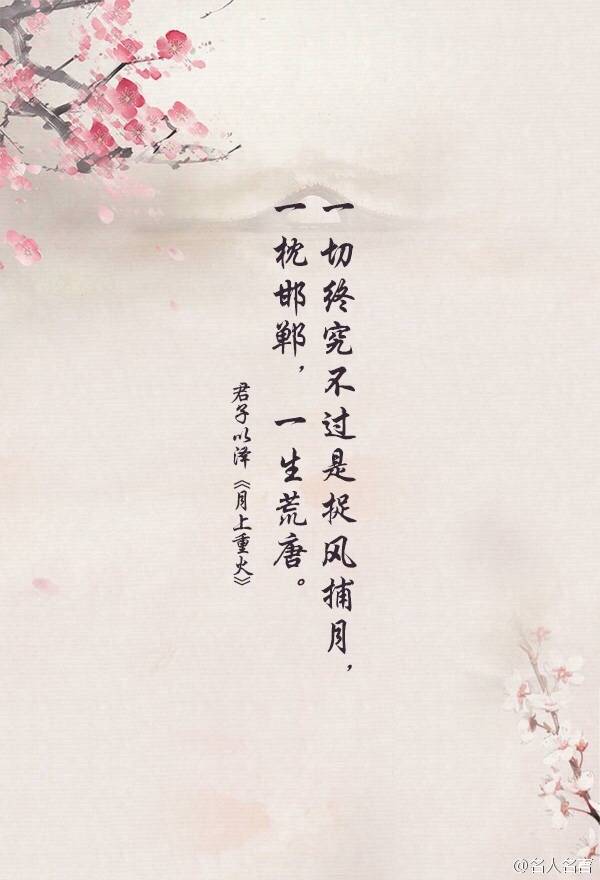 一切终究不过是捉风捕月，
一枕邯郸，一生荒唐。
君子以泽《月上重火》
@名人名言